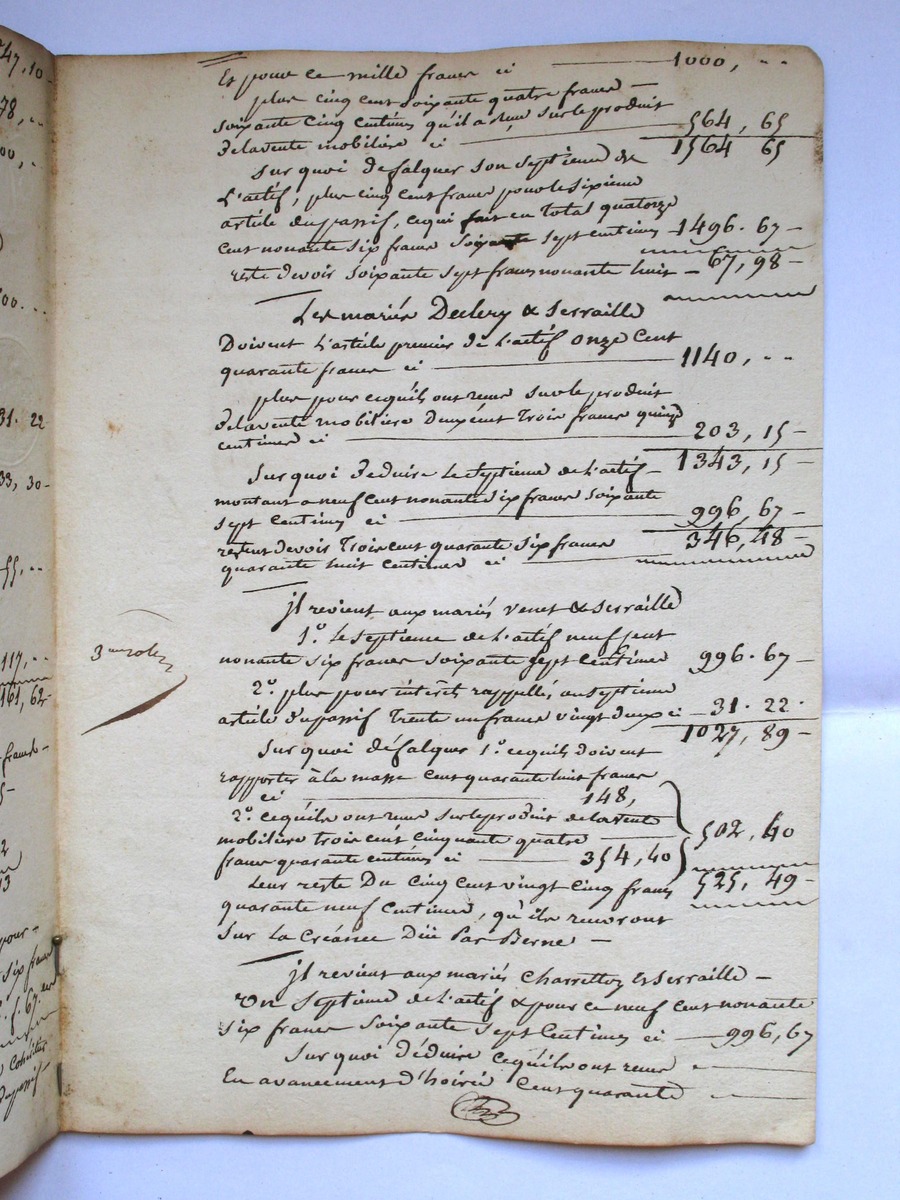 47, 10
78, ..
00, .
00...
31. 22
33, 30-
55, ..
117, ..
161, 62-
franc-
pour-
six franc
f. 67. en
cohéritier
du passif-
Et pour ce mille francs ci 1000, ..
plus cinq cent soixante quatre francs -
soixante cinq centimes qu'il a reçu sur le produit
de la vente mobilière ci 564, 65
1564 65
sur quoi défalquer son septième de
l'actif, plus cinq cent francs pour le sixième
article du passif, ce qui fait en total quatorze
cent nonante six francs soixante sept centimes 1496. 67-
reste devoir soixante sept francs nonante huit - 67, 98-
Les mariés Declery & Serraille
Doivent l'article premier de l'actif onze cent
quarante francs ci 1140, ..
plus pour ce qu'ils ont reçu sur le produit
de la vente mobilière deux cent trois francs quinze
centimes ci 203, 15-
Sur quoi déduire le septième de l'actif - 1343, 15-
montant a neuf cent nonante six francs soixante
sept centimes ci 996, 67-
restent devoir trois cent quarante six francs 346, 48-
quarante huit centimes ci
jl revient aux mariés Venet & Serraille
1.º le septième de l'actif neuf cent
nonante six francs soixante sept centimes 996. 67-
2.º plus pour intérêts rappellés au septième
article du passif trente un francs vingt deux ci - 31. 22.
1027, 89-
Sur quoi défalquer 1.º ce qu'ils doivent
rapporter à la masse cent quarante huit francs
ci 148,
2.º ce qu'ils ont reçu sur le produit de la vente
mobilière trois cent cinquante quatre 502, 40
francs quarante centimes ci 354, 40
Leur reste Du cinq cent vingt cinq francs 525, 49-
quarante neuf centimes, qu'ils recevront
Sur La Créance Düe Par Berne -
3me role
jl revient aux mariés Charretton & Serraille -
Un septième de l'actif & pour ce neuf cent nonante
six francs soixante sept centimes ci 996, 67
Sur quoi déduire ce qu'ils ont reçu
En avancement d'hoirie Cent quarante